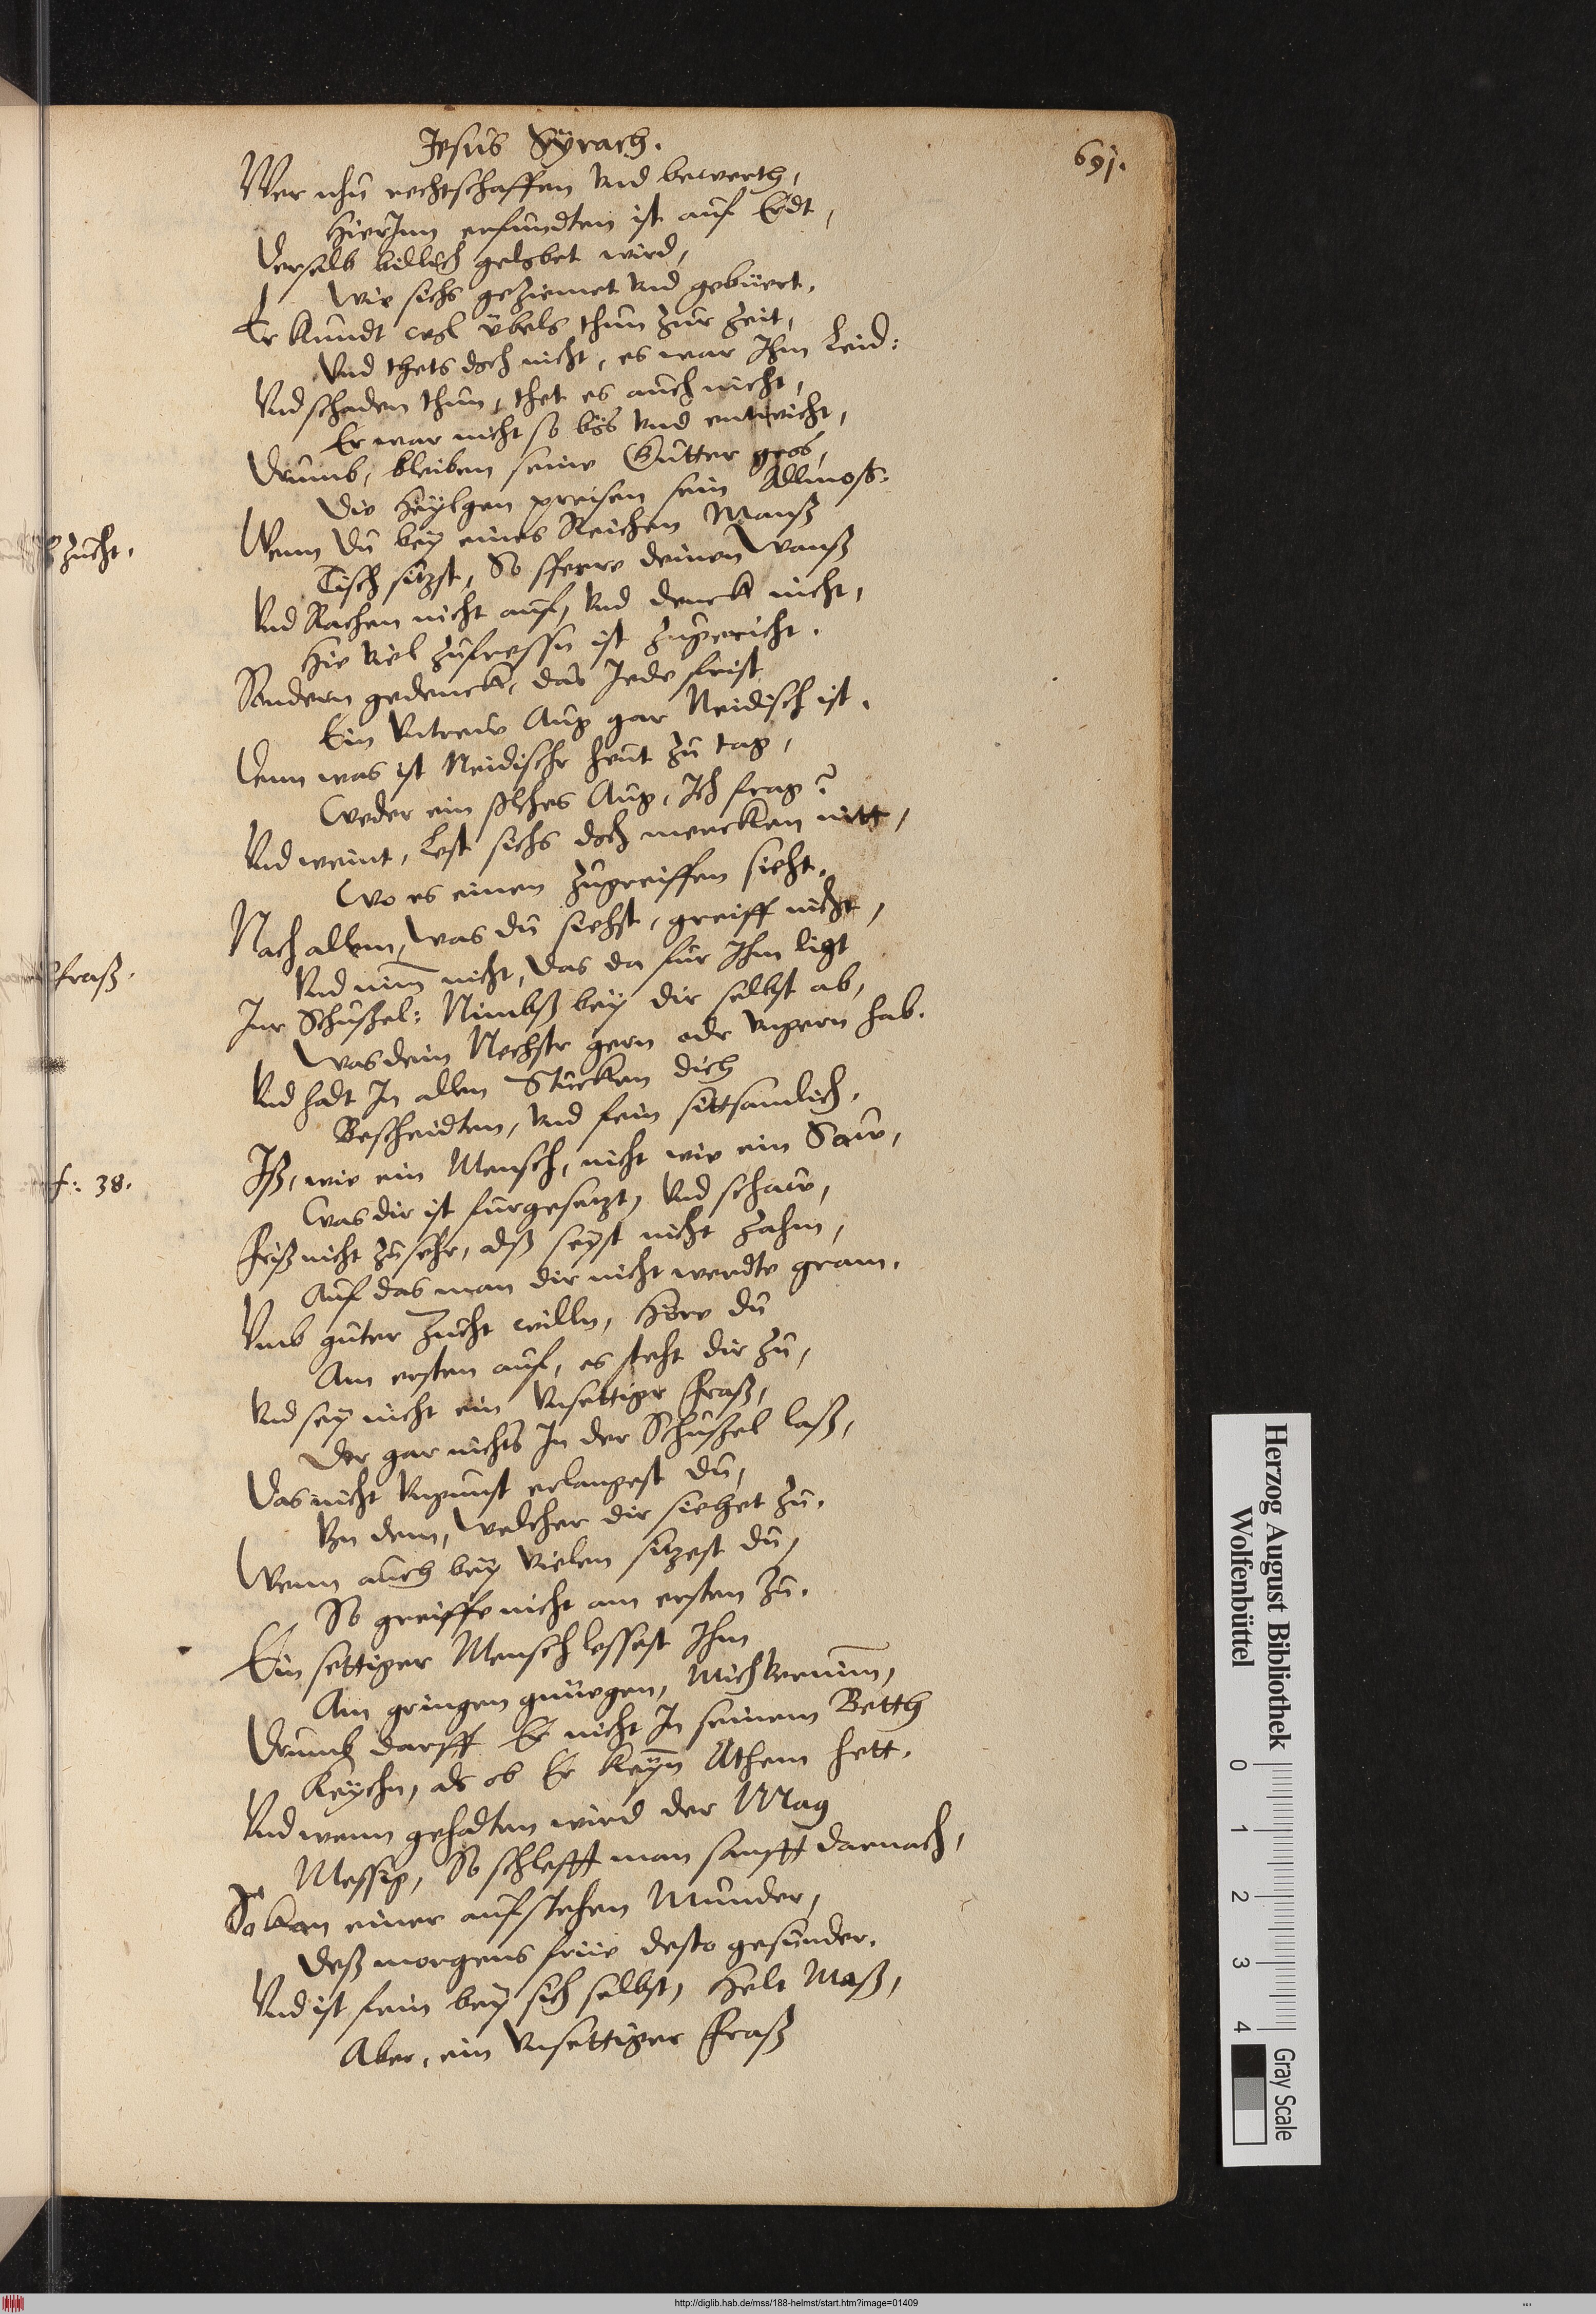 Jesus Syrach.
691.
Wer nhu rechtschaffen vnd bewerth,
HierJnn erfundten ist auf Erdt,
Derselb billich gelobet wird,
Wie sichs geziemet vnd gebüert.
Er kundt wol übels thun zur zeit,
Vnd thets doch nicht, es war Jhm Leid:
Vnd schaden thun, thet es auch nicht,
Er war nicht so bös vnd entwicht,
Drumb, bleiben seine Gutter gros,
Die Heylgen preisen sein Allmoss.
zucht.
Wenn Du bey eines Reichen Manß
Tisch sitzst, So sperre deinen Wanß
Vnd Rachen nicht auf, Vnd denck nicht,
Hie viel zufressn ist zugericht.
Sondern gedenck, das Jede frist
Ein Vntrew Aug gar Neidisch ist.
Denn was ist Neidischr heut zu tag,
Weder ein solches Aug, Jch frag?
Vnd weint, Lest sichs doch mercken nitt,
Wo es einen zugreiffen sieht.
Nach allem, Was du siehst, greiff nicht,
fraß.
Vnd nim nicht, das da für Jhm ligt
Jnr Schüßel: Nimbß bey dir selbst ab,
Was dein Nechstr gern odr vngern hab.
Vnd halt Jn allen Stucken dich
Bescheidten, Vnd fein sittsamlich.
f: 38.
Jß, wie ein Mensch, nicht wie ein Saw,
Was dir ist fürgesatzt, Vnd schaw,
Friß nicht zu sehr, alß seyst nicht zahm,
Auf das man dir nicht werdte gram.
Vmb guter Zucht willn, Höre du
Am ersten auf, es steht dir zu,
Vnd sey nicht ein Vnsettigr Fraß,
Der gar nichts Jn der Schüßel laß,
Das nicht Vngunst erlangest du,
Vn dem, Welcher dir siehet zu.
Wenn auch bey Vielen sitzest du,
So greiffe nicht am ersten zu.
Ein settiger Mensch lessest Jhm
Am gringen gnüegen, Mich Vernim,
Drumb darff Er nicht Jn seinem Betth
Keychn, als ob Er keyn Athem hett.
Vnd wenn gehalten wird der Mag
Messig, So schlefft man sanfft darnach,
So kan einer aufstehen Munder,
Deß morgens früe desto gesunder.
Vnd ist fein bey sich selbst, Helt Maß,
Aber, ein Vnsettiger Fraß
Herzog August Bibliothek
Wolfenbüttel
0 1 2 3 4
Gray Scale
http://diglib.hab.de/mss/188-helmst/start.htm?image=01409